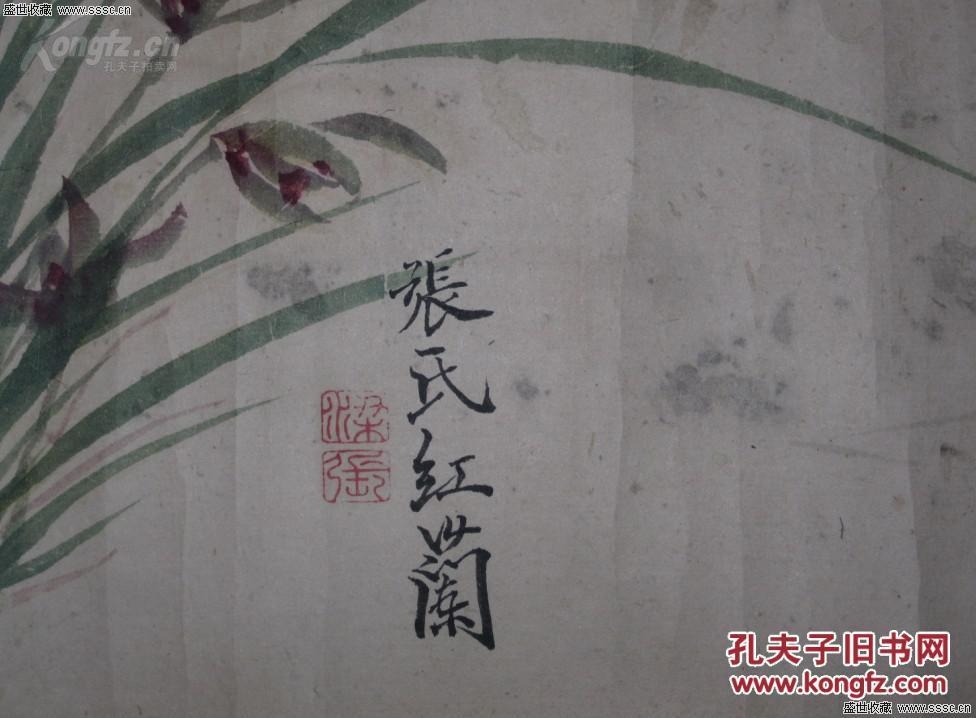 盛世收藏 www.sssc.cn
盛世收藏 www.sssc.cn
Kongfz.cn
孔夫子拍卖网
張氏紅蘭
梁張
孔夫子旧书网
www.kongfz.com
盛世收藏 www.sssc.cn